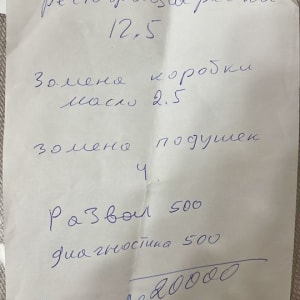 12.5
Замена коробки
масло 2.5
замена подушек
4
РаЗвал 500
диагностика 500
20000